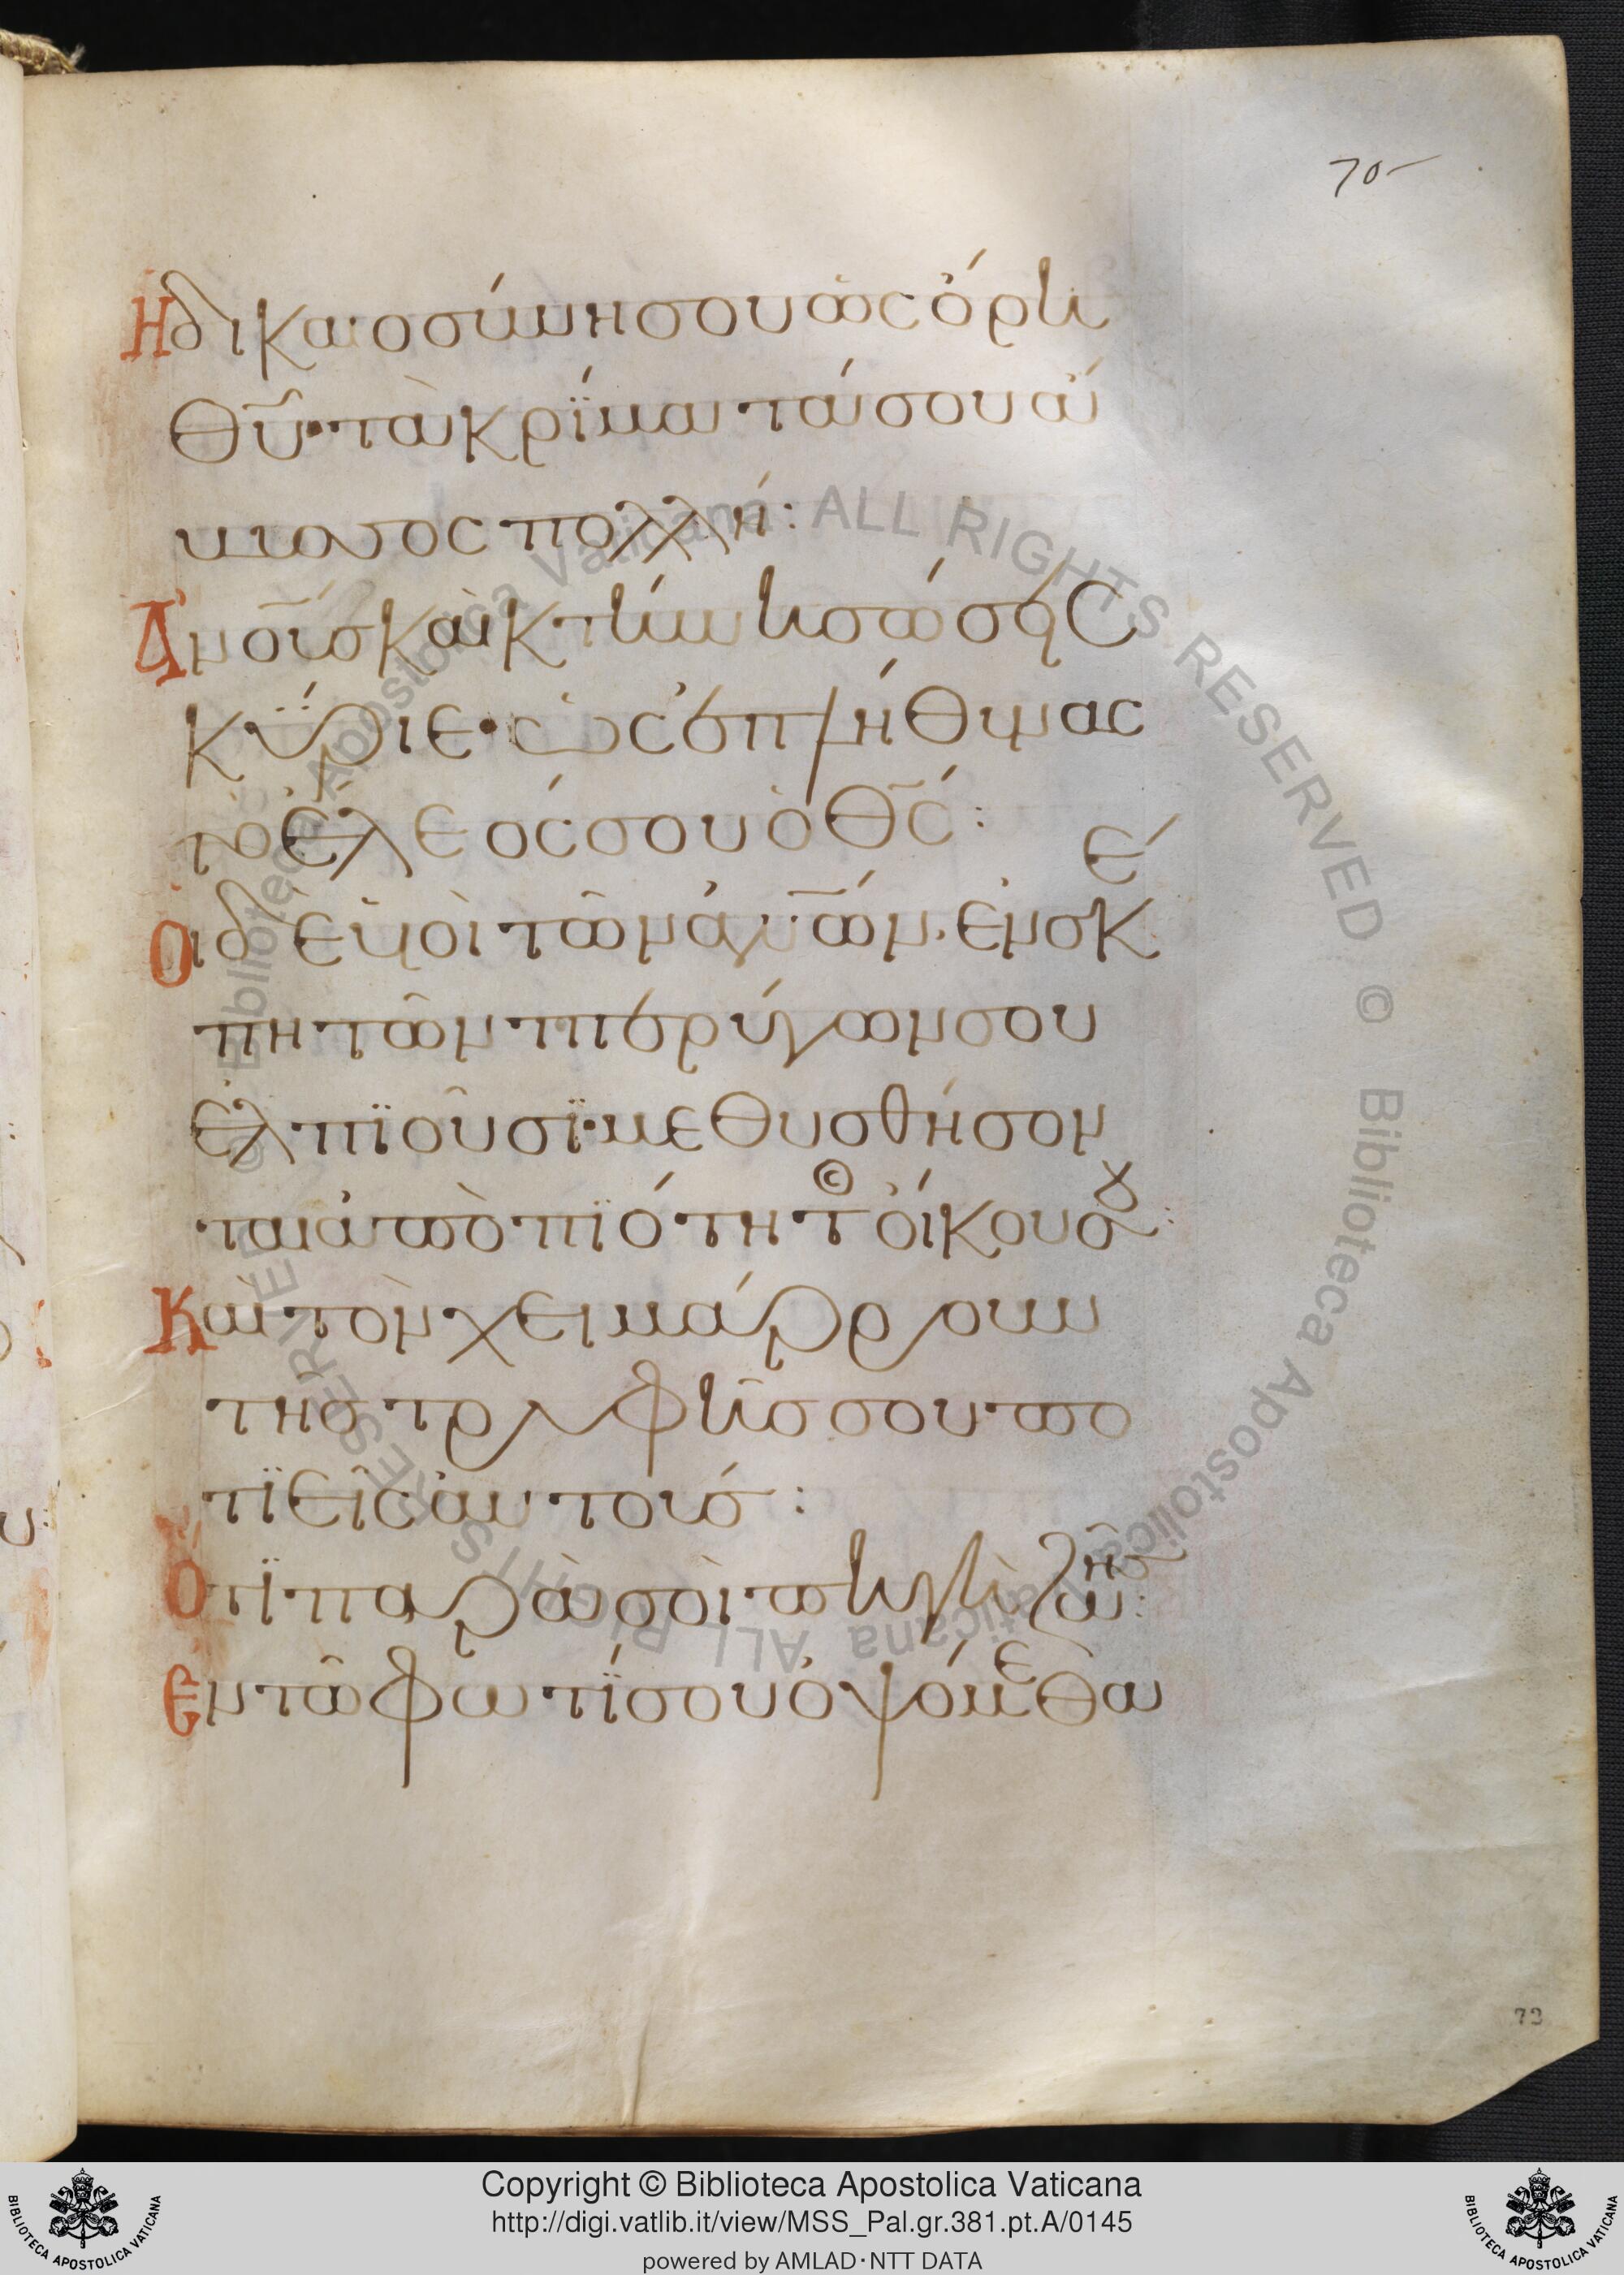 70
Ἡ δικαιοσύνη σου ὡς ὄρη
θῦ· τὰ κρίματά σου ἄ
βυσσος πολλή:
Ἀνοῦς καὶ κτήνη σώσης
κύριε· ὡς ἐπλήθυνας
τὸ ἔλεός σου ὁ θς:
Οἱ δὲ υἱοὶ τῶν ἀνων· ἐν σκέ
πη τῶν πτερύγων σου
ἐλπιοῦσι· μεθυσθήσον
ται ἀπὸ πιότητος οἴκου σου:
Καὶ τὸν χειμάρρουν
τῆς τρυφῆς σου πο
τιεῖς αὐτούς:
Ὅτι παρὰ σοὶ πηγὴ ζωῆς:
Ἐν τῶ φωτί σου ὀψόμεθα
73
© Biblioteca Apostolica Vaticana ALL RIGHTS RESERVED © Biblioteca Apostolica Vaticana ALL RIGHTS RESERVED
Copyright © Biblioteca Apostolica Vaticana
http://digi.vatlib.it/view/MSS_Pal.gr.381.pt.A/0145
powered by AMLAD·NTT DATA
BIBLIOTECA APOSTOLICA VATICANA
BIBLIOTECA APOSTOLICA VATICANA